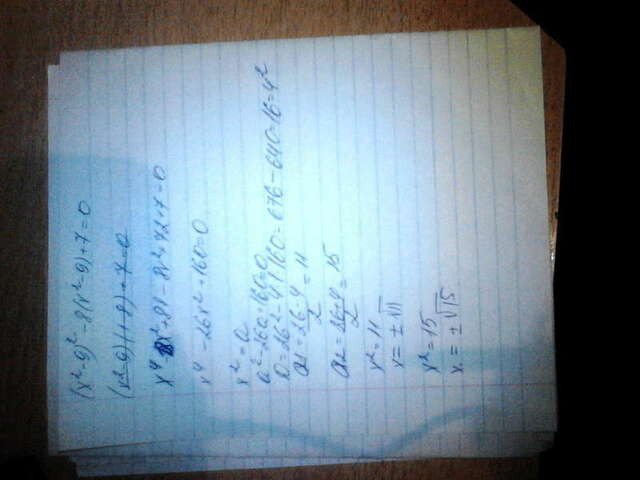 (x²-9)²-8(x²-9)+7=0
(x²-9)(1-8)+7=0
x⁴-18x²+81-8x²+72+7=0
x⁴-26x²+160=0
x²=a
a²-26a+160=0
D=26²-4·160=676-640=16=4²
a1=26-4/2=11
a2=26+4/2=15
x²=11
x=±√11
x²=15
x=±√15